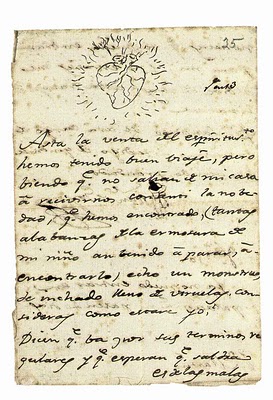 25
Asta la venta del espiritusto
hemos tenido buen viaje, pero
biendo q.e no salian de mi casa
a recivirnos consenti la nobe-
dad, q.e hemos encontrado, (tantas
alabanzas de la ermosura de
mi niño an benido à parar, à
encontrarlo) echo un monstruo
de inchado lleno de viruelas, con-
sideras como estare yo,
Dicen q.e ba por sus terminos re-
gulares y q.e esperan q.e saldra
es de las malas